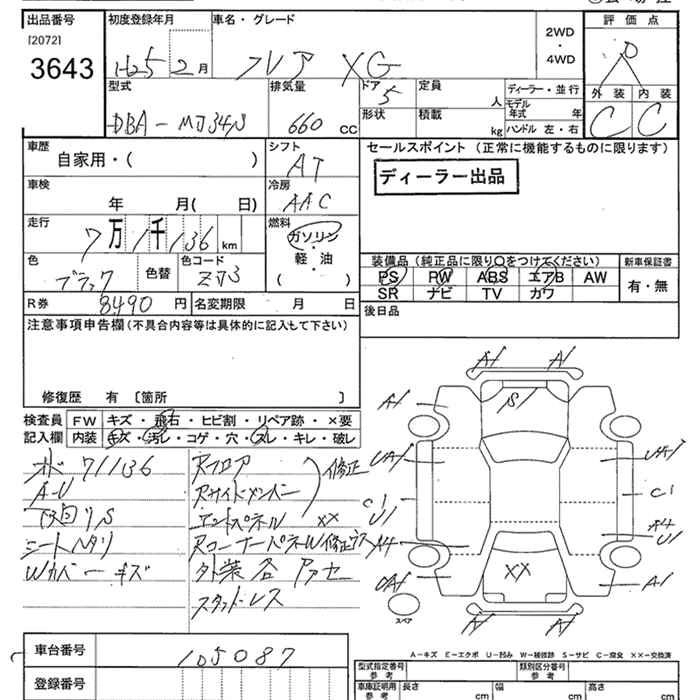 出品番号 初度登録年月 車名・グレード 2WD・4WD 評価点
[2072]
3643
H25 2月 フレア XG
型式 排気量 ドア 5 定員 人 ディーラー・並行
外装 内装
DBA-MJ34S 660 cc 形状 積載 kg モデル年式 年
ハンドル 左・右
C C
車歴 シフト セールスポイント (正常に機能するものに限ります)
自家用・( ) AT
ディーラー出品
車検 冷房
年 月( 日) AAC
走行 燃料
7万1千136km ガソリン
軽・油
( )
色 色替 色コード 装備品 (純正品に限り○をつけてください) 新車保証書
ブラック ZJ3 PS PW ABS エアB AW 有・無
SR ナビ TV カワ
R券 8490円 名変期限 月 日 後日品
注意事項申告欄 (不具合内容等は具体的に記入して下さい)
修復歴 有 〔箇所 〕
検査員 FW キズ・飛石・ヒビ割・リペア跡・×要
記入欄 内装 キズ・汚レ・コゲ・穴・スレ・キレ・破レ
71136
A-U
下回りS
シートヘタリ
Wカバーキズ
Rフロア
Rサイドメンバー
修正
エンドパネル ××
RコーナーパネルW修正ウス
外装 谷
スタッドレス
A1 A1
A1 S1
UA1 UA1
C1 C1
U1 A4
A4 U1
××
A1
A1 A1
スペア
A-キズ E-エクボ U-凹み W-補修跡 S-サビ C-腐食 ××-交換済
車台番号 105087
登録番号
型式指定番号 参考 類別区分番号 参考
車庫証明用 参考 長さ cm 幅 cm 高さ cm